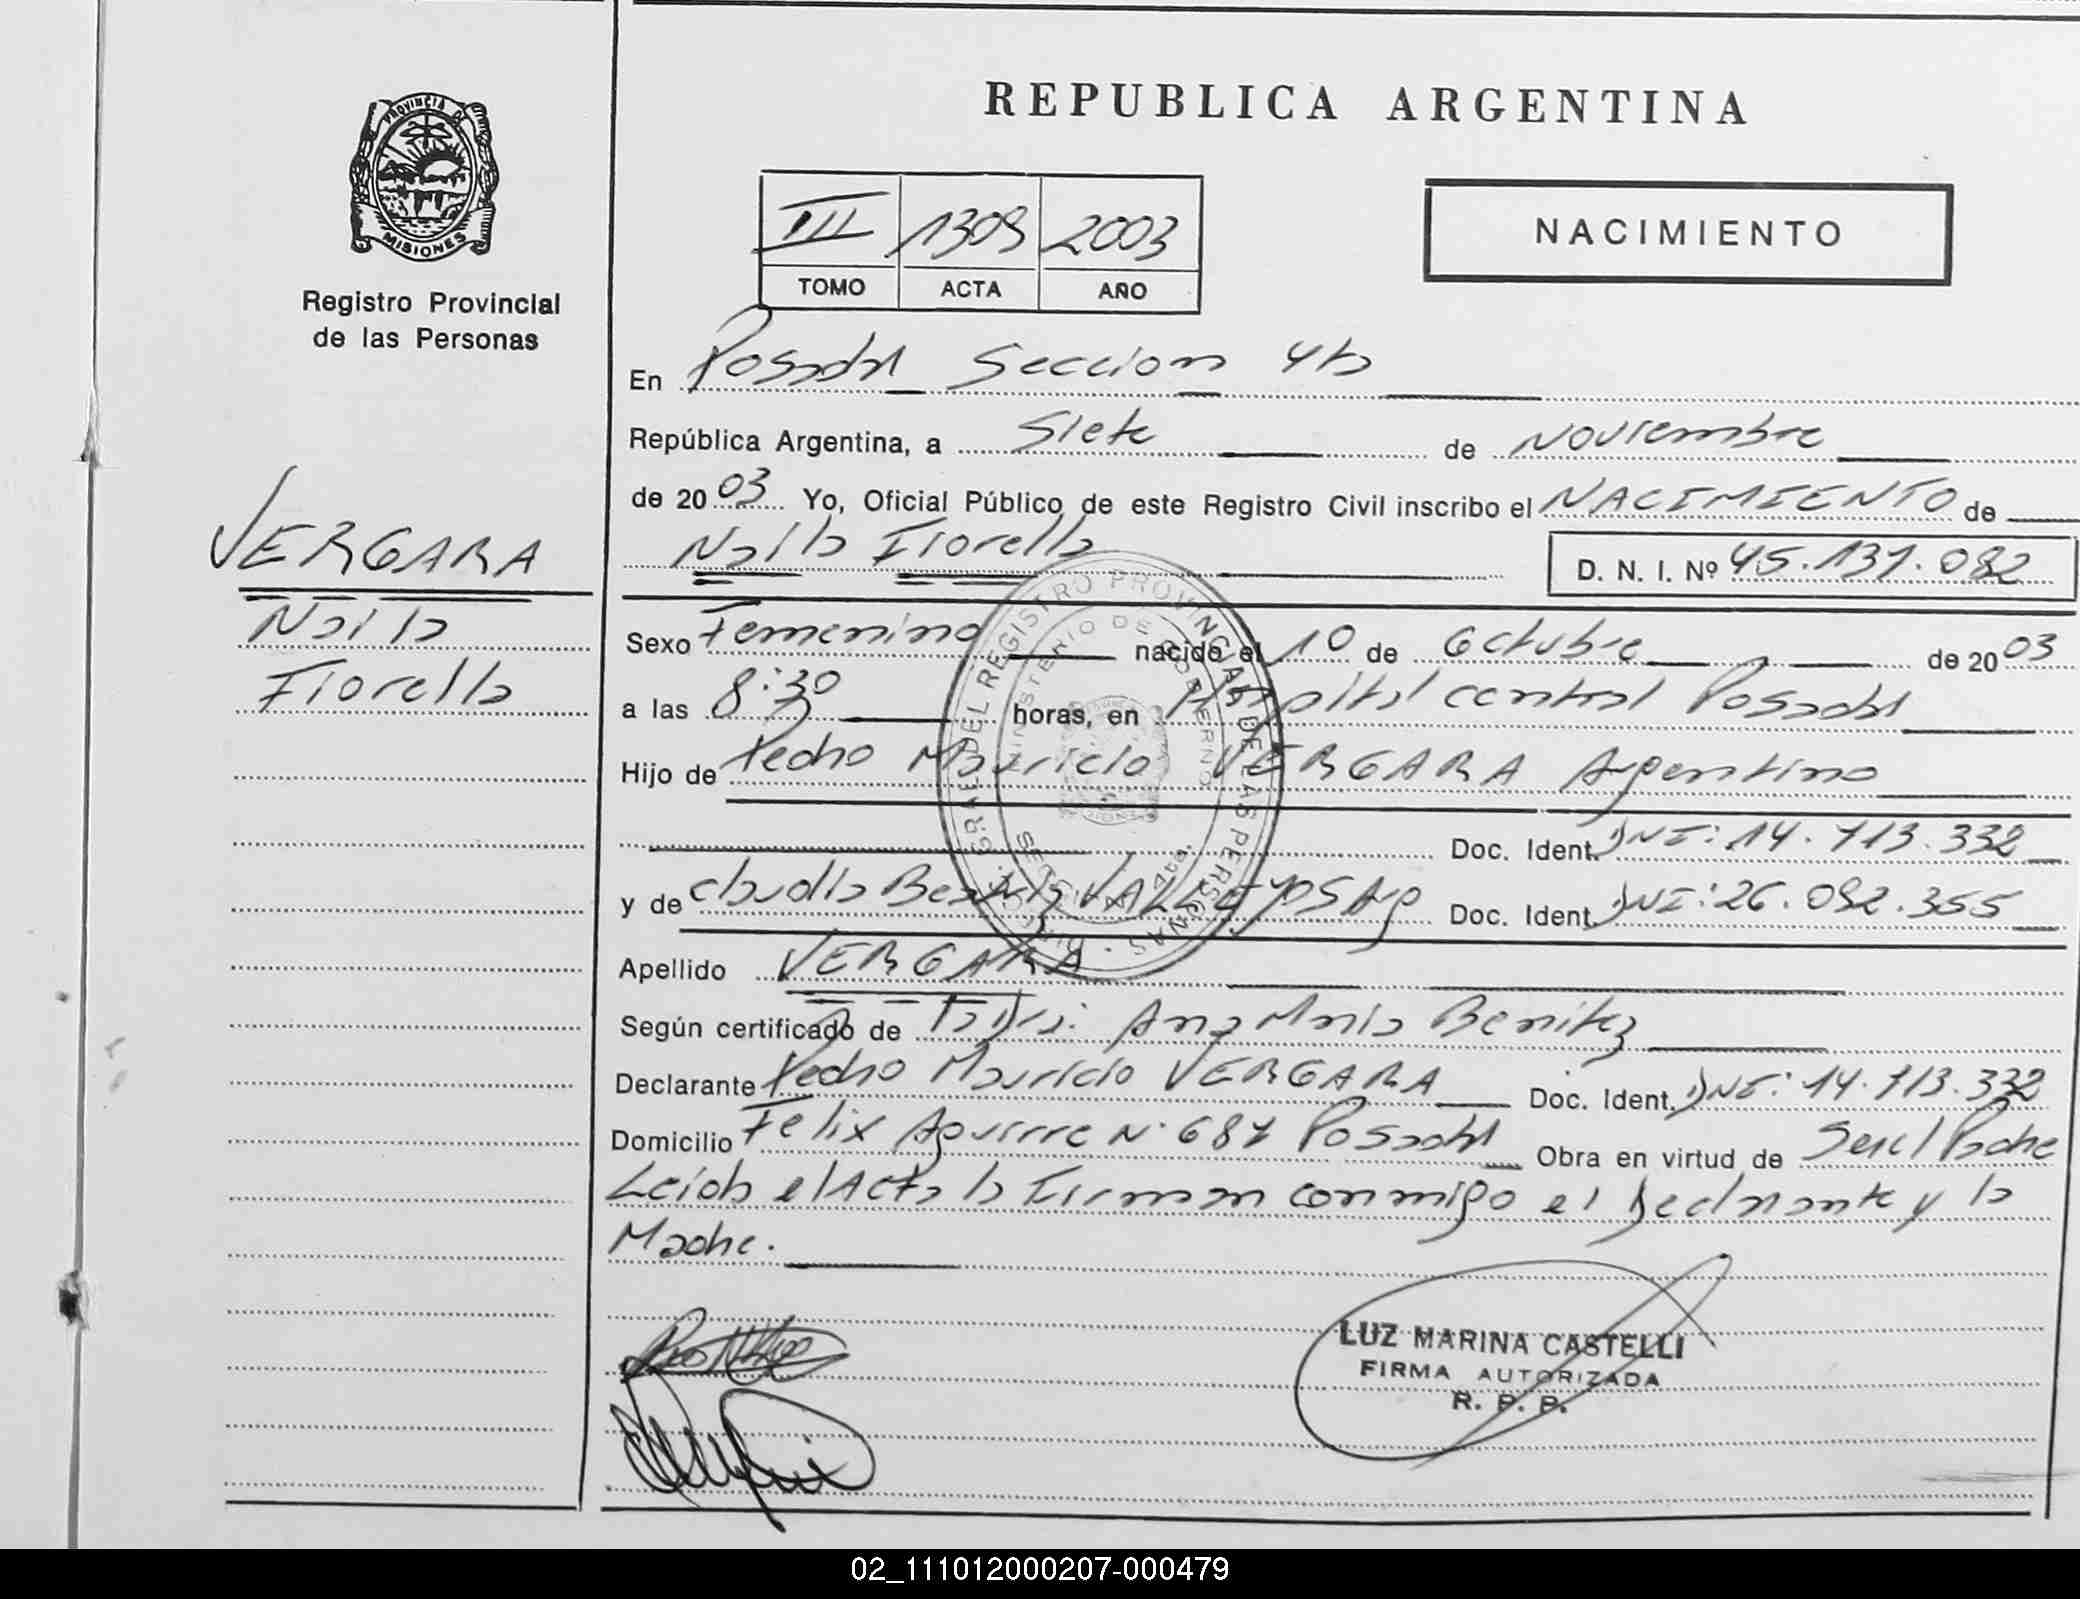 PROVINCIA DE
MISIONES
Registro Provincial
de las Personas
VERGARA
Naila
Fiorella
REPUBLICA ARGENTINA
III 1309 2003
TOMO ACTA AÑO
NACIMIENTO
En Posadas Seccion 4ta
República Argentina, a Siete de Noviembre
de 2003 Yo, Oficial Público de este Registro Civil inscribo el NACIMIENTO de
Naila Fiorella D. N. I. Nº 45.137.082
Sexo Femenino nacido el 10 de Octubre de 2003
a las 8:30 horas, en Hospital central Posadas
Hijo de Pedro Mauricio VERGARA Argentino
Doc. Ident. DNI: 14.713.332
y de Claudia Beatriz VALLEJOS Arg Doc. Ident. DNI: 26.082.355
Apellido VERGARA
Según certificado de Ana Maria Benitez
Declarante Pedro Mauricio VERGARA Doc. Ident. DNI: 14.713.332
Domicilio Felix Aguirre N° 687 Posadas Obra en virtud de Ser el Padre
Leida el Acta la Firman conmigo el Declarante y la
Madre.
DIREC. GRAL. DEL REGISTRO PROVINCIAL DE LAS PERSONAS
MINISTERIO DE GOBIERNO
SECCION 4ta.
LUZ MARINA CASTELLI
FIRMA AUTORIZADA
R. P. P.
02_111012000207-000479